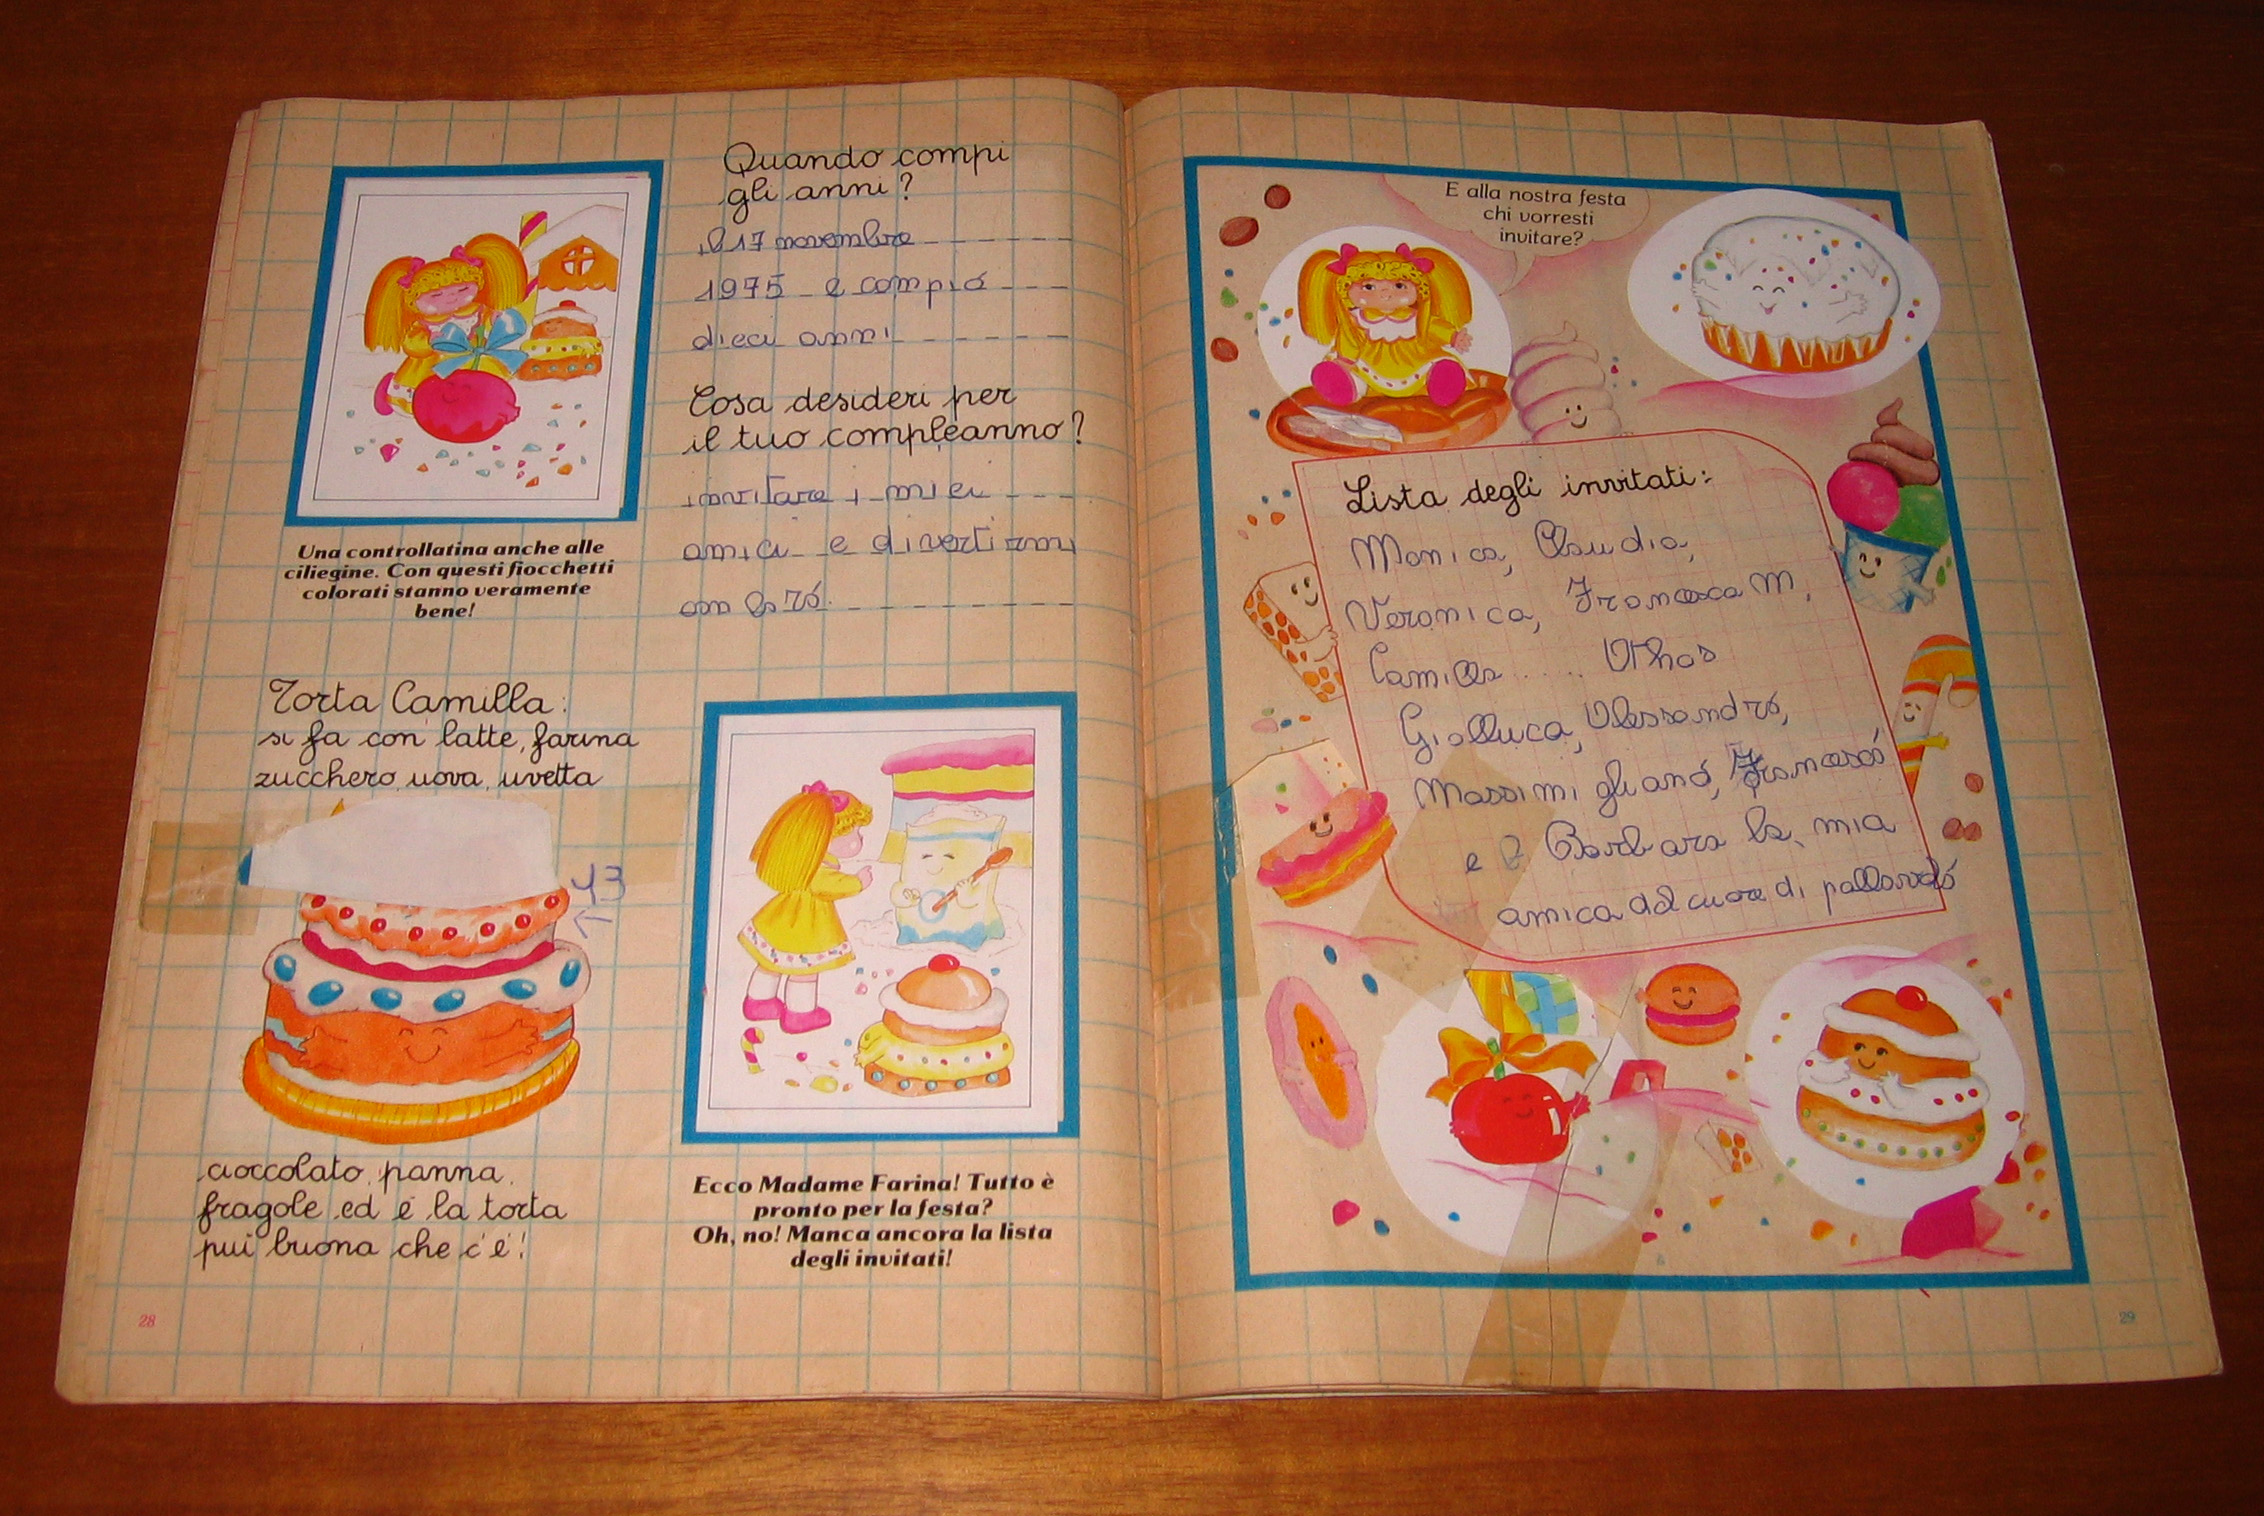 Quando compi
gli anni?
il 17 novembre
1975 e compio
dieci anni
Cosa desideri per
il tuo compleanno?
invitare i miei
amici e divertirmi
con loró.
Una controllatina anche alle
ciliegine. Con questi fiocchetti
colorati stanno veramente
bene!
Torta Camilla:
si fa con latte, farina
zucchero, uova, uvetta
43
cioccolato, panna,
fragole ed é la torta
puì buona che c'é!
Ecco Madame Farina! Tutto è
pronto per la festa?
Oh, no! Manca ancora la lista
degli invitati!
28
E alla nostra festa
chi vorresti
invitare?
Lista degli invitati:
Monica, Claudia,
Veronica, Francesca M,
Camilla .....
Gialluca, Alessandró,
Massimi glianó, Francescó
e Barbara la mia
amica del cuore di pallavoló
29